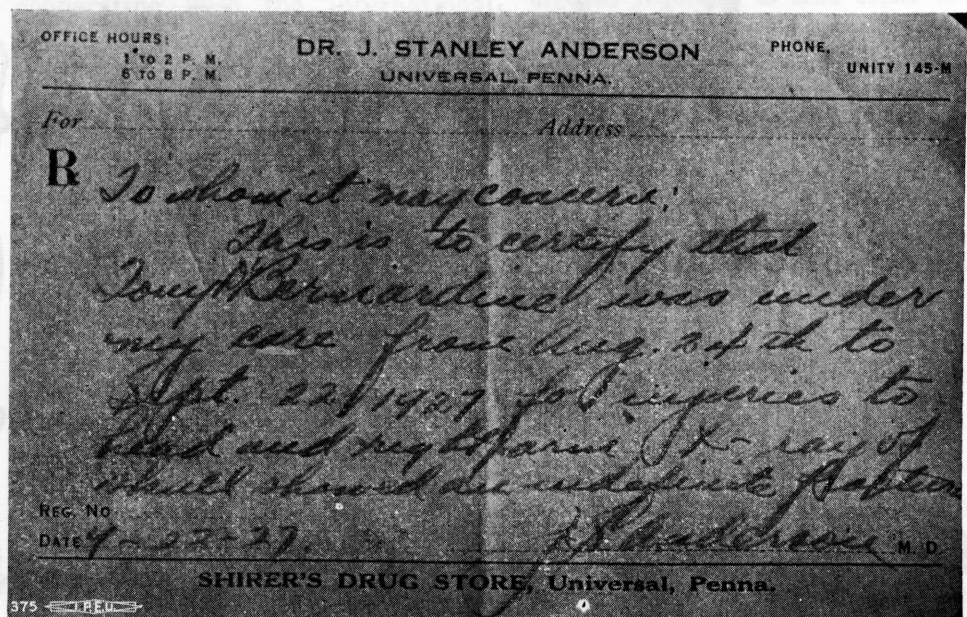 OFFICE HOURS:
1 TO 2 P. M.
6 TO 8 P. M.
DR. J. STANLEY ANDERSON
UNIVERSAL, PENNA.
PHONE,
UNITY 145-M
For Address
R
To whom it may concern:
This is to certify that
Tony Bernardine was under
my care from Aug. 24th to
Sept. 22, 1927 for injuries to
head and right arm X-ray of
skull showed an indefinite fracture
REG. NO
DATE 9-22-27. J S Anderson M. D.
SHIRER'S DRUG STORE, Universal, Penna.
375 I.P.E.U.